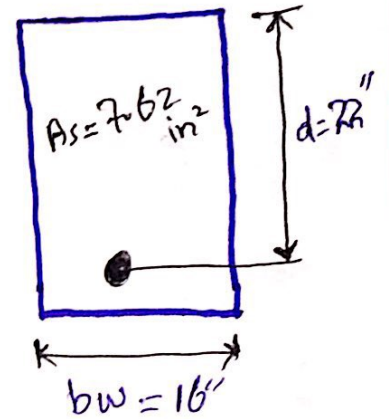 As=7.62
in²
d=22"
bw=16"